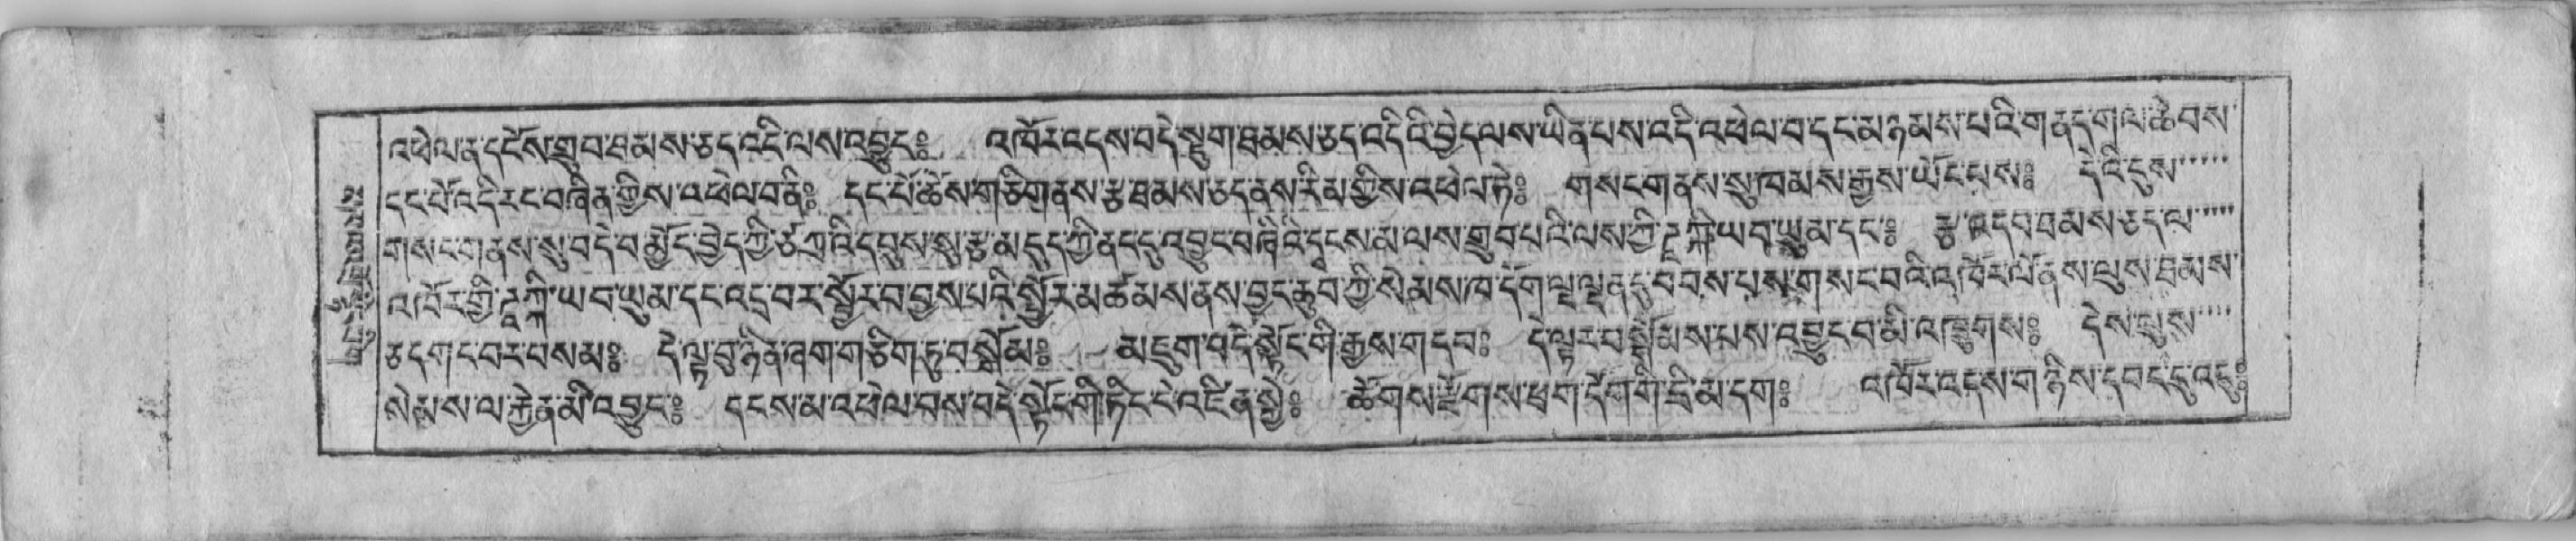 འཕེལ་ན་དངོས་གྲུབ་ཐམས་ཅད་འདི་ལས་འབྱུང༔ འཁོར་འདས་བདེ་སྡུག་ཐམས་ཅད་འདིའི་བྱེད་ལས་ཡིན་པས་འདི་འཕེལ་བ་དང་མ་ཉམས་པའི་གནད་གལ་ཆེབས་
དང་པོ་འདི་རང་བཞིན་གྱིས་འཕེལ་བནི༔ དང་པོ་ཚོས་གཅིག་ནས་རྩ་ཐམས་ཅད་ནས་རིམ་གྱིས་འཕེལ་ཏེ༔ གསང་གནས་སུ་ཁམས་རྒྱས་ཡོང་པས༔ དེའི་དུས་
གསང་གནས་སུ་བདེ་བ་མྱོང་བྱེད་ཀྱི་ཙཀྲའི་དབུས་སུ་རྩ་མདུད་ཀྱི་ནང་དུ་འབྱུང་བཞིའི་དྭངས་མ་ལས་གྲུབ་པའི་ལས་ཀྱི་ཌཱཀྐི་ཡབ་ཡུམ་དང་༔ རྩ་འདབ་ཐམས་ཅད་ལ་
འཁོར་གྱི་ཌཱཀྐི་ཡབ་ཡུམ་དང་འདྲ་བར་སྦྱོར་བ་བྱས་པའི་སྦྱོར་མཚམས་ནས་བྱང་ཆུབ་ཀྱི་སེམས་ཁ་དོག་ལྔ་ལྡན་དུ་བབས་པས་གསང་བའི་འཁོར་ལོ་ནས་ལུས་ཐམས་
ཅད་གང་བར་བསམ༔ དེ་ལྟ་བུ་ཉིན་ཞག་གཅིག་ཏུ་བསྒོམ༔ མཇུག་བདེ་སྟོང་གི་རྒྱས་གདབ༔ དེ་ལྟར་བསྒོམས་པས་འབྱུང་བ་མི་འཁྲུགས༔ དེས་ལུས་
སེམས་ལ་རྐྱེན་མི་འབྱུང༔ དྭངས་མ་འཕེལ་བས་བདེ་སྟོང་གི་ཏིང་ངེ་འཛིན་སྐྱེ༔ ཚོགས་རྫོགས་ཕྲག་དོག་གི་དྲི་མ་དག༔ འཁོར་འདས་གཉིས་དབང་དུ་འདུ༔